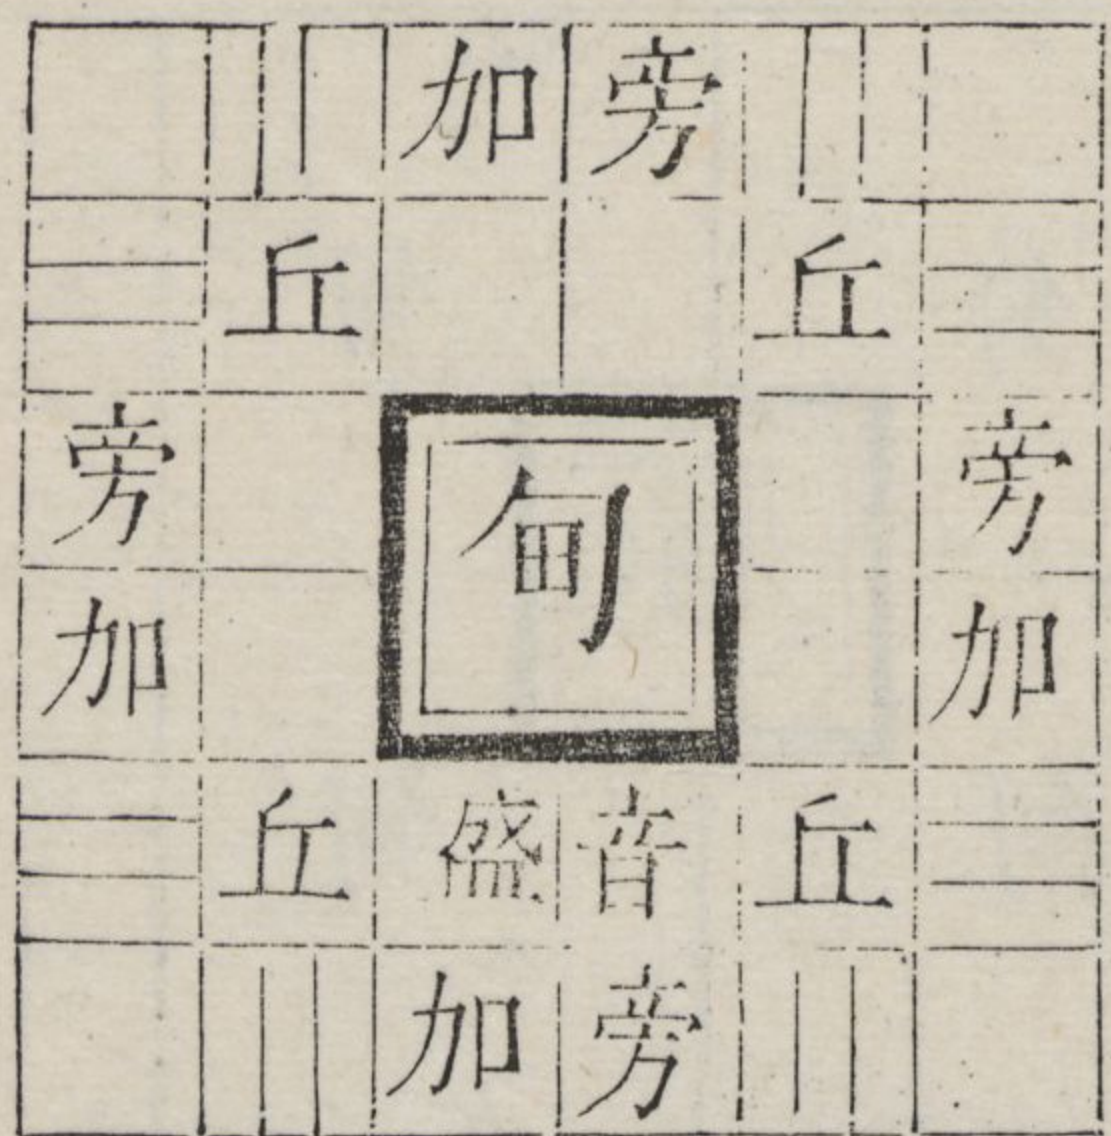 旁加
丘丘
旁旁
甸
加加
丘音盛丘
旁加